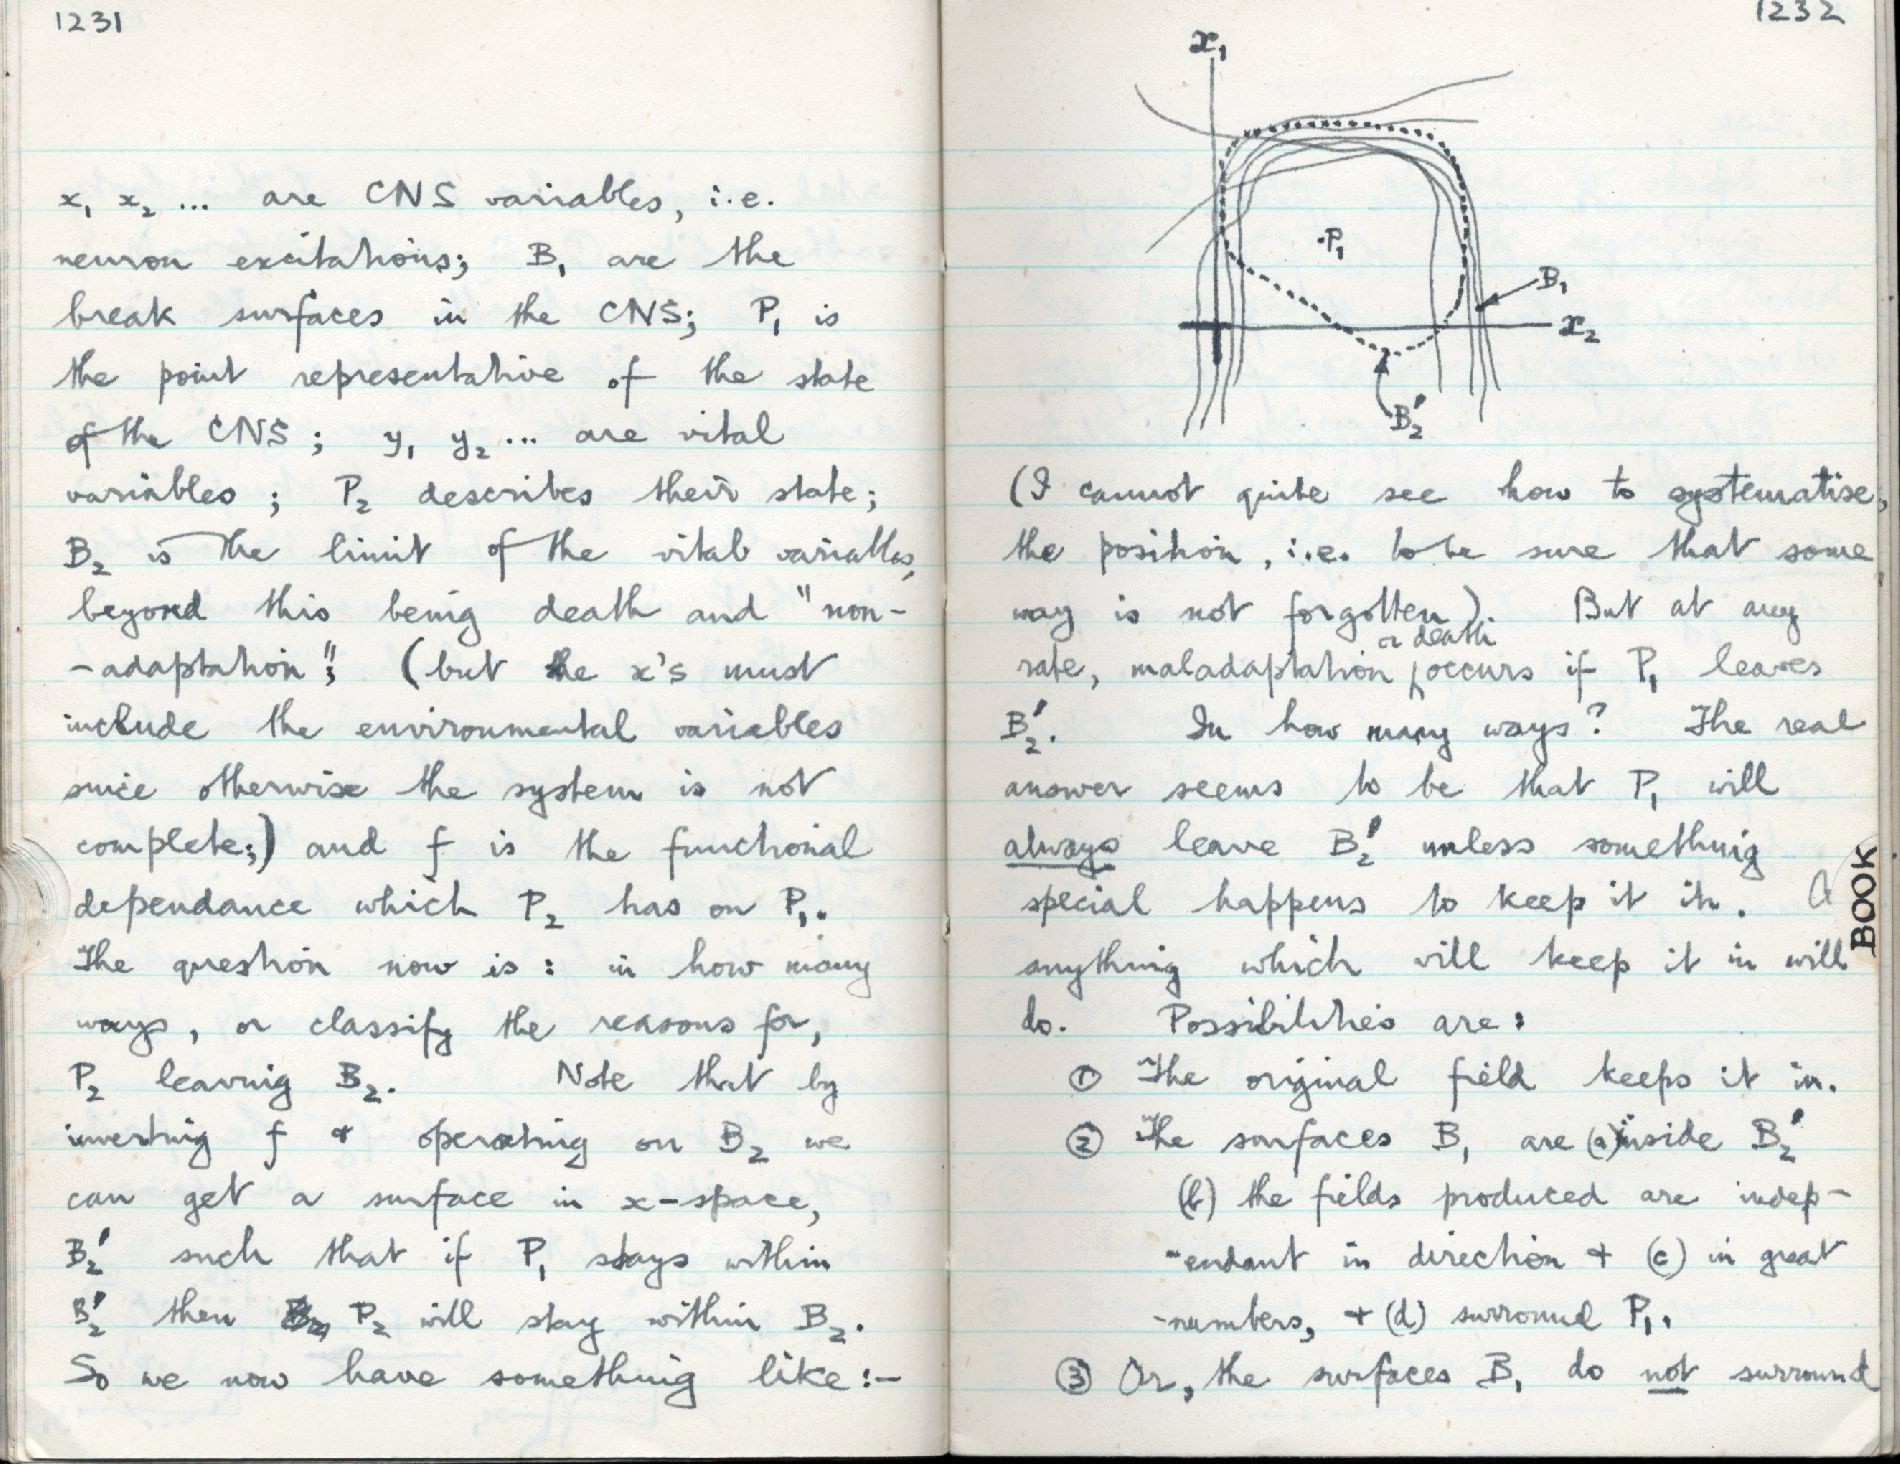 1231
x₁ x₂ ... are CNS variables, i.e.
neuron excitations; B₁ are the
break surfaces in the CNS; P₁ is
the point representative of the state
of the CNS; y₁ y₂ ... are vital
variables; P₂ describes their state;
B₂ is the limit of the vital variables,
beyond this being death and "non-
-adaptation"; (but the x's must
include the environmental variables
since otherwise the system is not
complete;) and f is the functional
dependance which P₂ has on P₁.
The question now is: in how many
ways, or classify the reasons for,
P₂ leaving B₂. Note that by
inverting f & operating on B₂ we
can get a surface in x-space,
B₂' such that if P₁ stays within
B₂' then P₂ will stay within B₂.
So we now have something like:-
1232
x₁
.P₁
B₁
x₂
B₂'
(I cannot quite see how to systematise,
the position, i.e. to be sure that some
way is not forgotten). But at any
or death
rate, maladaptation occurs if P₁ leaves
B₂'. In how many ways? The real
answer seems to be that P₁ will
always leave B₂' unless something
special happens to keep it in.
BOOK
anything which will keep it in will
do. Possibilities are:
① The original field keeps it in.
② The surfaces B₁ are (a) inside B₂'
(b) the fields produced are indep-
-endant in direction & (c) in great
-numbers, & (d) surround P₁.
③ Or, the surfaces B₁ do not surround